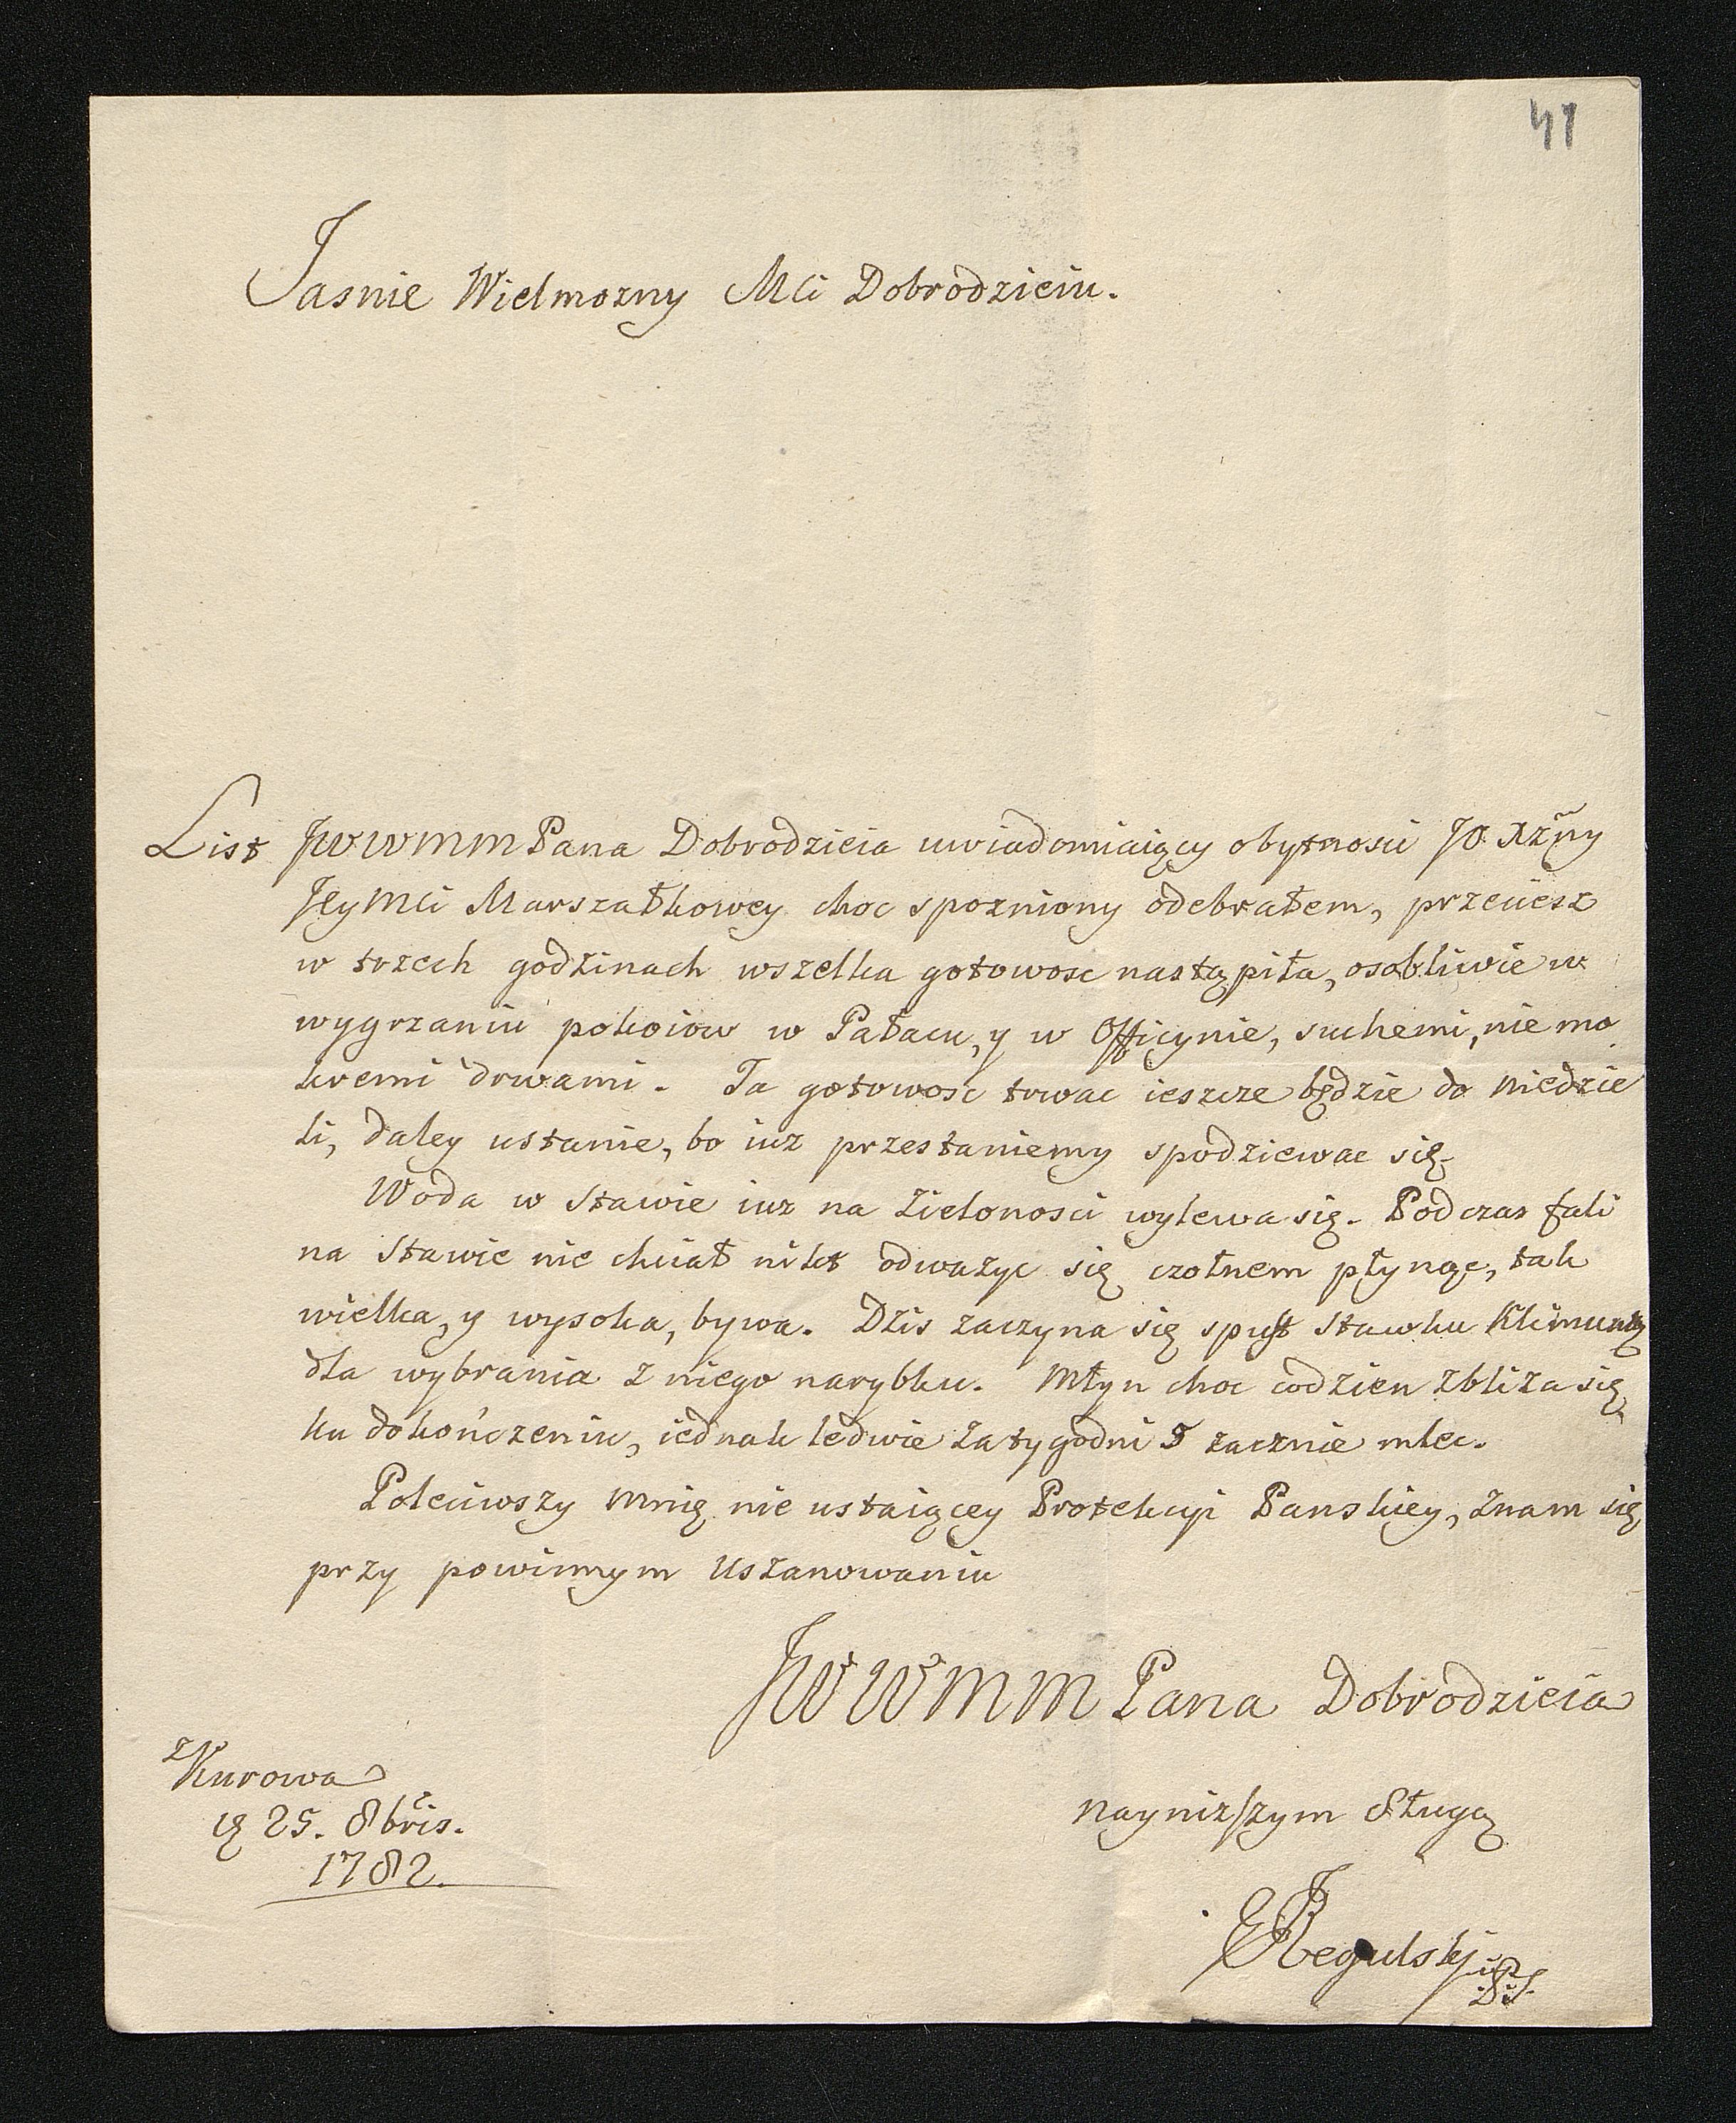 41
Jasnie Wielmozny Mci Dobrodzieiu.
List JWWMMPana Dobrodzieia uwiadomiaiący obytnosci JO Xżny
JeyMci Marszałkowey choc spozniony odebrałem, przeciesz
w trzech godzinach wszelka gotowosc nastąpiła, osobliwie w
wygrzaniu pokoiow w Pałacu, y w Officynie, suchemi, nie mo
kremi drwami. Ta gotowosc trwac ieszcze będzie do niedzie
li, daley ustanie, bo iuz przestaniemy spodziewac się.
Woda w Stawie iuz na Zielonosci wylewa się. Podczas fali
na Stawie nie chciał nikt odwazyc się czołnem płynąc, tak
wielka, y wysoka, bywa. Dzis zaczyna się spust Stawku Klimunty
dla wybrania z niego narybku. Młyn choc codzien zbliza się
ku dokończeniu, iednak ledwie za tygodni 5 zacznie mlec.
Poleciwszy mnię nie ustaiącey Protekcyi Panskiey, znam się
przy powinnym Uszanowaniu
JWWMM Pana Dobrodzieia
z Kurowa
25. 8bris.
1782.
nayniższym Sługą
Regulski